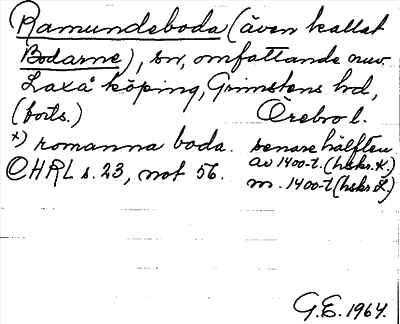 Ramundeboda (även kallat
Bodarne), sn, omfattande nuv.
Laxå köping, Grimstens hd,
(forts.) Örebro l.
x) romanna boda. senare hälften
av 1400-t. (hskr. K.)
CHRL s. 23, not 56. m. 1400-t (hskr. L.)
G.E. 1964.